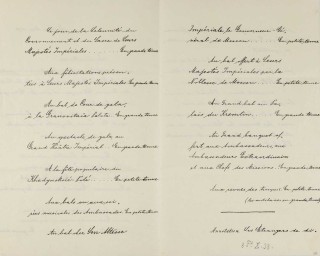 Le jour de la Solennité du
Couronnement et du Sacre de Leurs
Majestés Impériales. En grande tenue
Aux félicitations présen-
tées à Leurs Majestés Impériales En grande tenue
Au bal de Cour de gala,
à la Granovitaïa Palata En grande tenue
Au spectacle de gala au
Grand Théâtre Impérial En grande tenue
A la fête populaire du
Khodynskoïé Polé En petite tenue
Aux bals
des Ambassades En petite tenue
Au bal
Impériale le Gouverneur Gé-
néral de Moscou En petite tenue
Au bal offert à Leurs
Majestés Impériales par la
Noblesse de Moscou En petite tenue
Au grand bal au Pa-
lais du Kremlin En grande tenue
Au grand banquet
Ambassadeurs et
Ambassadeurs Extraordinaires
et aux Chefs des Missions En grande tenue
A la revue des troupes En petite tenue
en grande tenue